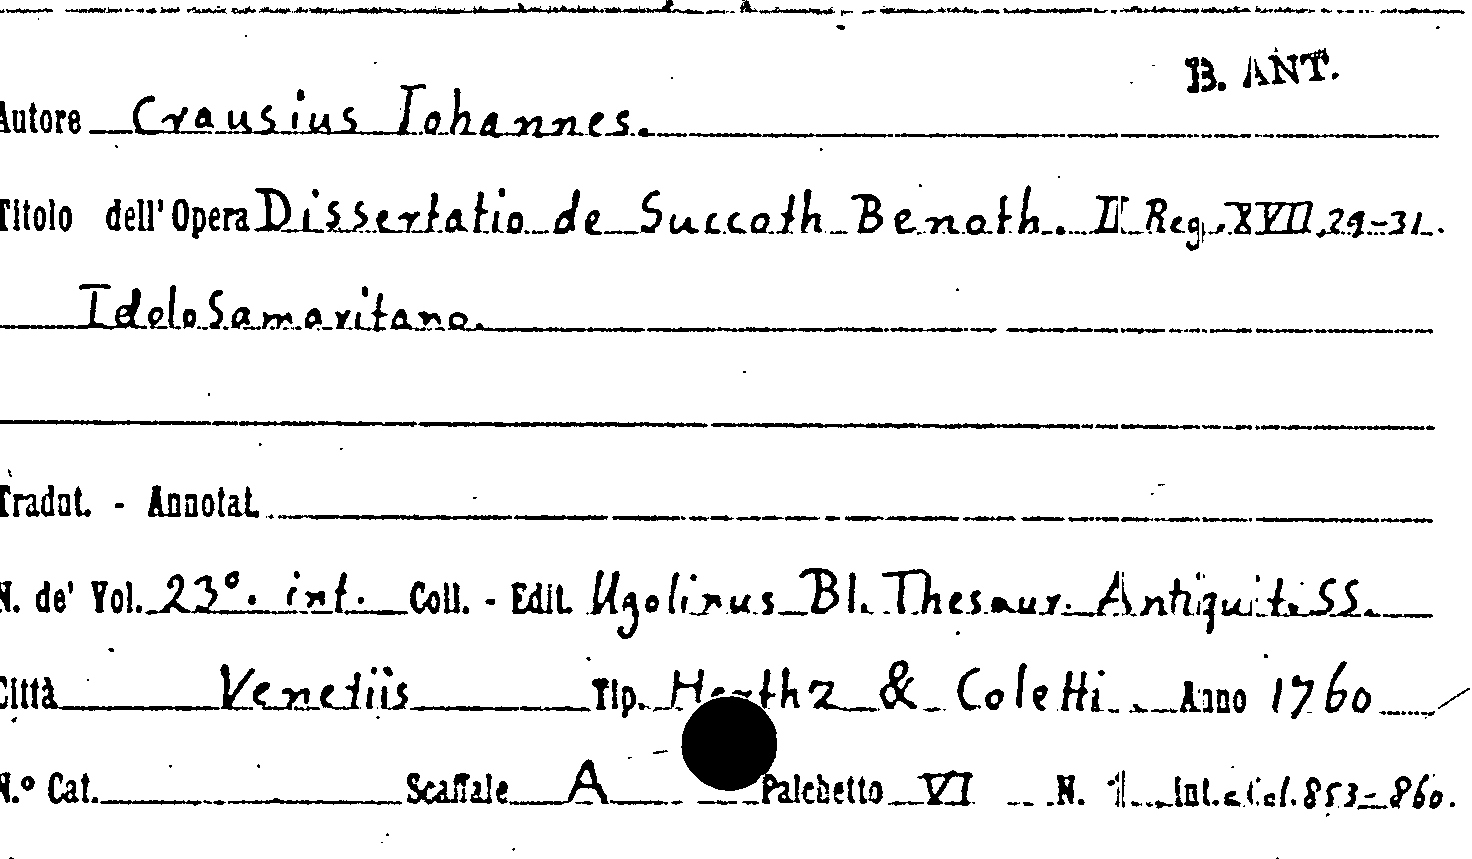 B. ANT.
Autore Crausius Iohannes.
Titolo dell' Opera Dissertatio de Succoth Benoth. II Reg. XVII, 29-31.
Idolo Samaritano.
Tradut. - Annotat.
N. de' Vol. 23°. int. Coll. - Edit. Ugolinus Bl. Thesaur. Antiquit. SS.
Città Venetiis Tip. & Coletti. Anno 1760
N.° Cat. Scaffale A Palchetto VI N. 1 Int. Col. 853-860.